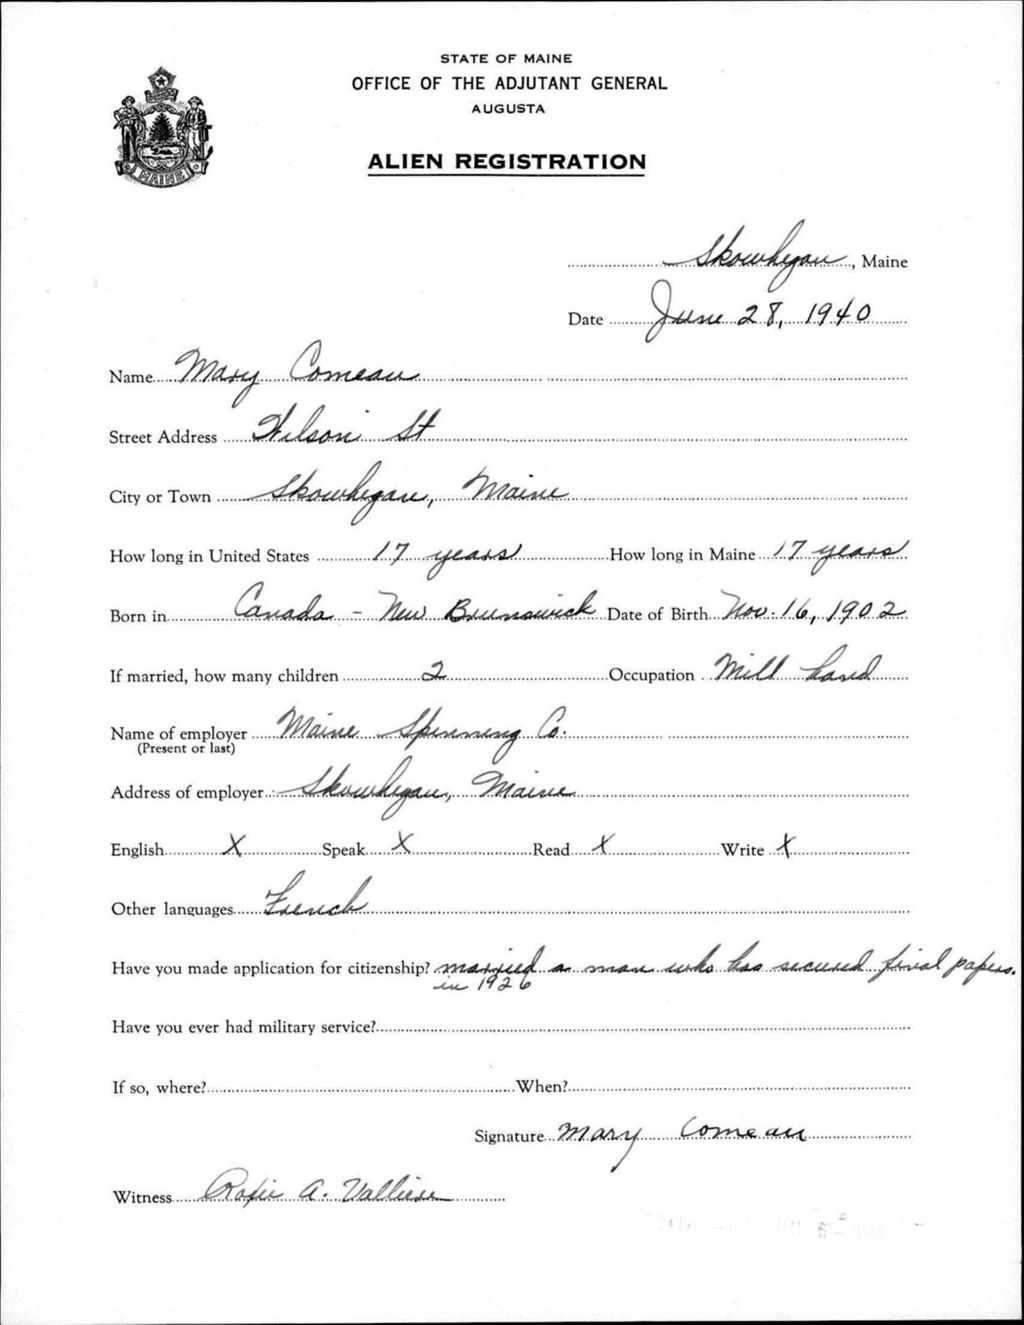 STATE OF MAINE
OFFICE OF THE ADJUTANT GENERAL
AUGUSTA
ALIEN REGISTRATION
MAINE
Skowhegan, Maine
Date June 28, 1940
Name Mary Comeau
Street Address Wilson St
City or Town Skowhegan, Maine
How long in United States 17 years How long in Maine 17 years
Born in Canada - New Brunswick Date of Birth Nov. 16, 1902
If married, how many children 2 Occupation Mill hand
Name of employer Maine Spinning Co.
(Present or last)
Address of employer Skowhegan, Maine
English X Speak X Read X Write X
Other languages French
Have you made application for citizenship? married a man who has secured final papers.
in 1926
Have you ever had military service?
If so, where? When?
Signature Mary Comeau
Witness A. Valliere